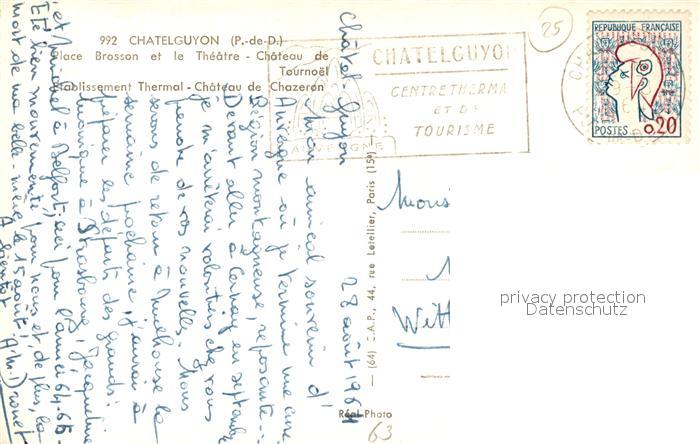 992 CHATELGUYON (P.-de-D.)
Place Brosson et le Théâtre - Château de
Tournoël
Etablissement Thermal - Château de Chazeron
CHATELGUYON
CENTRE THERMAL
ET DE
TOURISME
AUVERGNE
25
REPUBLIQUE FRANÇAISE
POSTES 0,20
Châtel-Guyon 28 août 1964
Mon amical souvenir d'
Auvergne où je termine une cure.
Région montagneuse, reposante...
Devant aller à Cernay en septembre
je m'arrêterai volontiers chez vous
prendre de vos nouvelles. Nous
serons de retour à Mulhouse la
semaine prochaine, j'aurai à
préparer les départs des grands:
à Strasbourg, Jacqueline
et à Belfort, ceci pour l'année 64-65.
Eté bien mouvementé pour nous et, de plus, la
mort de ma belle-mère le 15 août.
A bientôt
— (64) E.A.P., 44, rue Letellier, Paris (15e)
Réal-Photo
63
Mons
Witt
privacy protection
Datenschutz